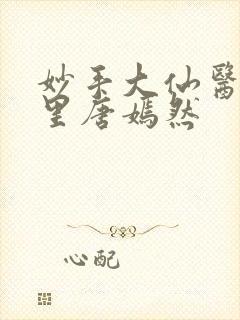 妙手大仙醫
里唐嫣然
心配